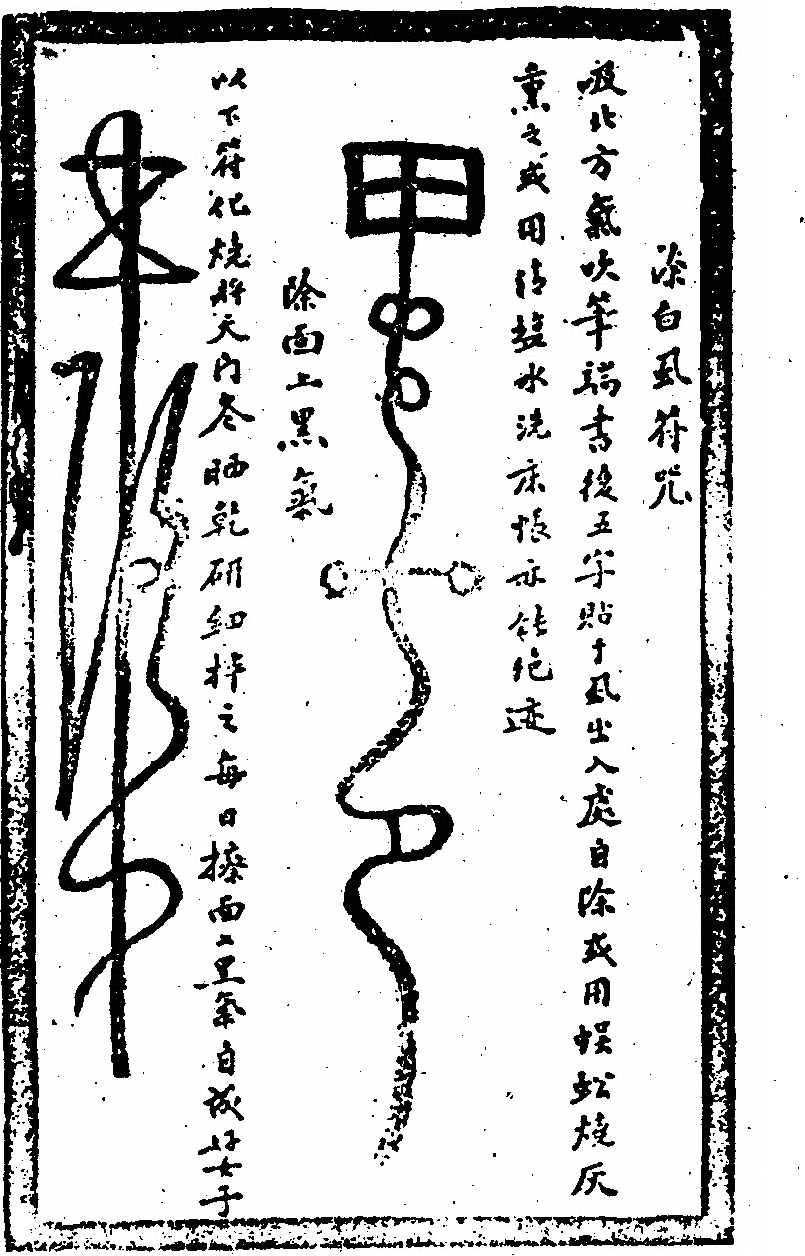 除白虱符咒
吸北方氣吹筆端書後五字貼于虱出入處自除或用蜈蚣燒灰
熏之或用清鹽水洗床帳亦能絕迹
除面上黑氣
以下符化燒將天門冬晒乾研細拌之每日擦面上黑氣自散好女子